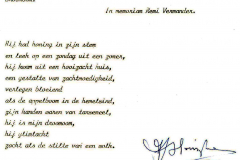 In memoriam Remi Vermander.
Hij had honing in zijn stem
en leek op een zondag uit een zomer,
hij kwam uit een hooizacht huis,
een gestalte van zachtmoedigheid,
verlegen bloeiend
als de appelboom in de
zijn handen waren van tarwemeel,
hij is mijn droomoom,
hij glimlacht
zacht als de stilte van een